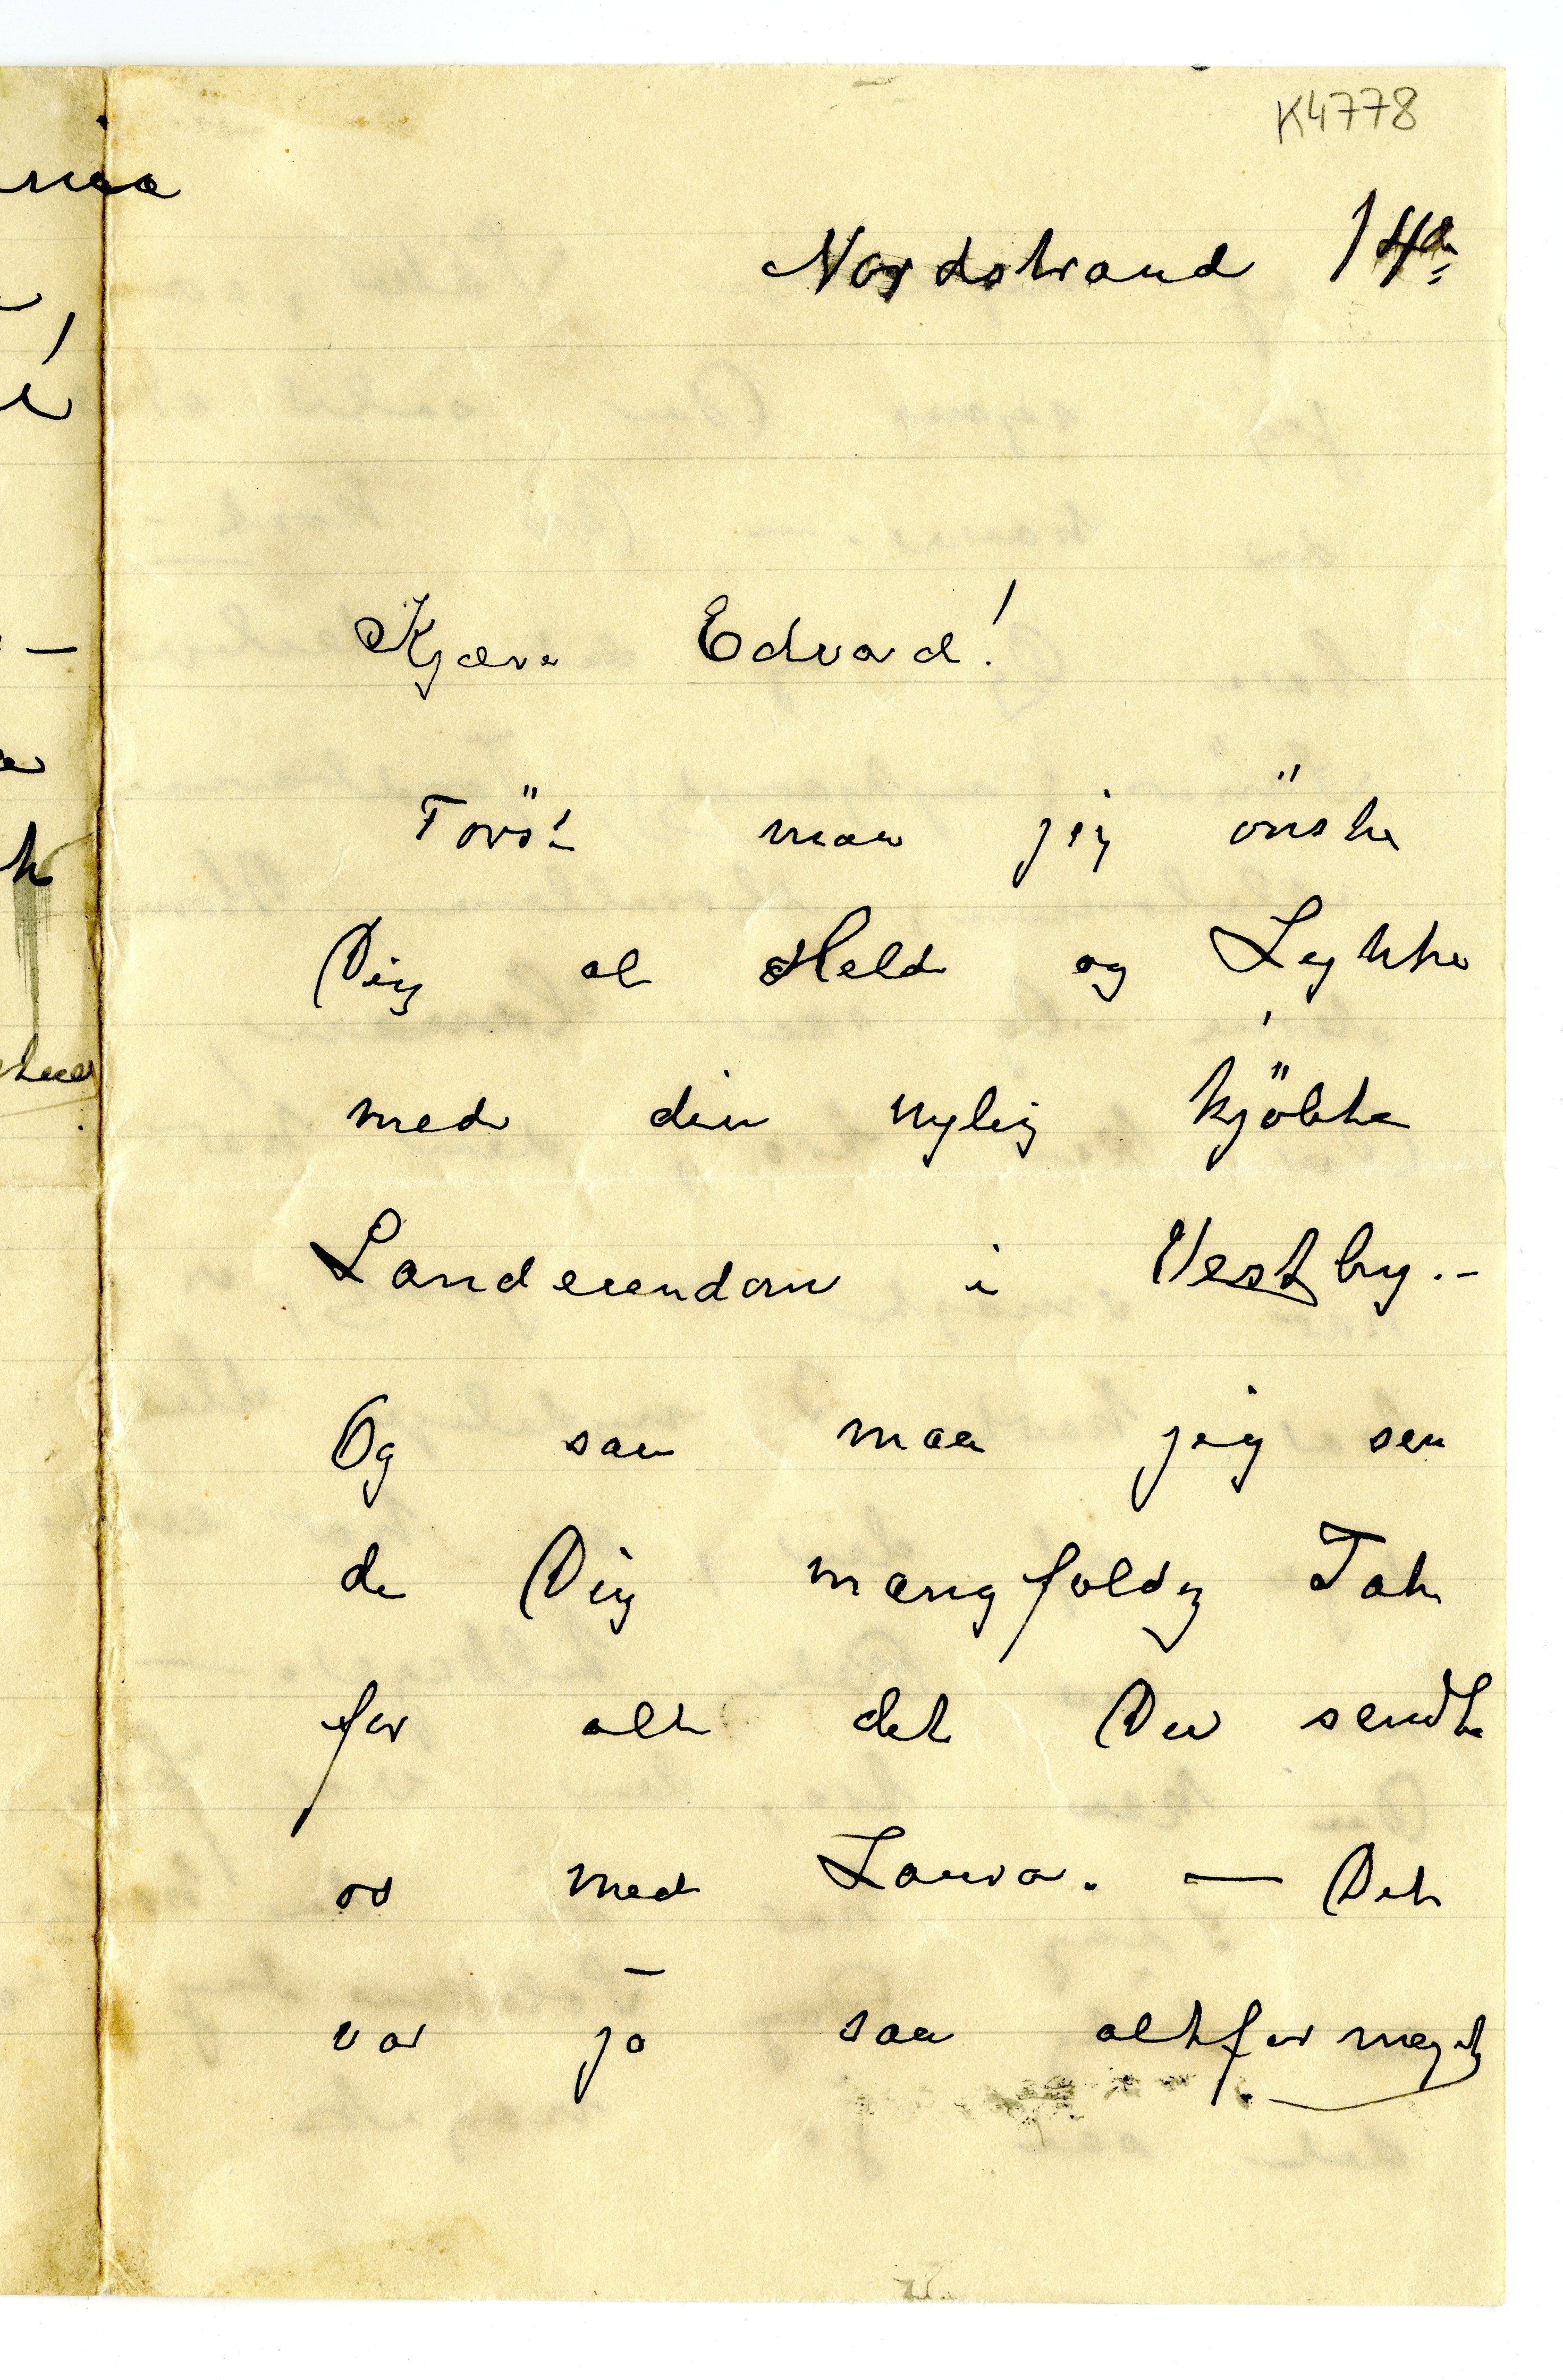 K4778
Nordstrand 14de
Kjære Edvard!
Först maa jeg önske
Dig al Held og Lykke
med din nylig kjöbte
Landeiendom i Vestby. –
Og saa maa jeg sen
de Dig mangfoldig Tak
for alt det Du sendte
os med Laura. — Det
var jo saa altfor meget